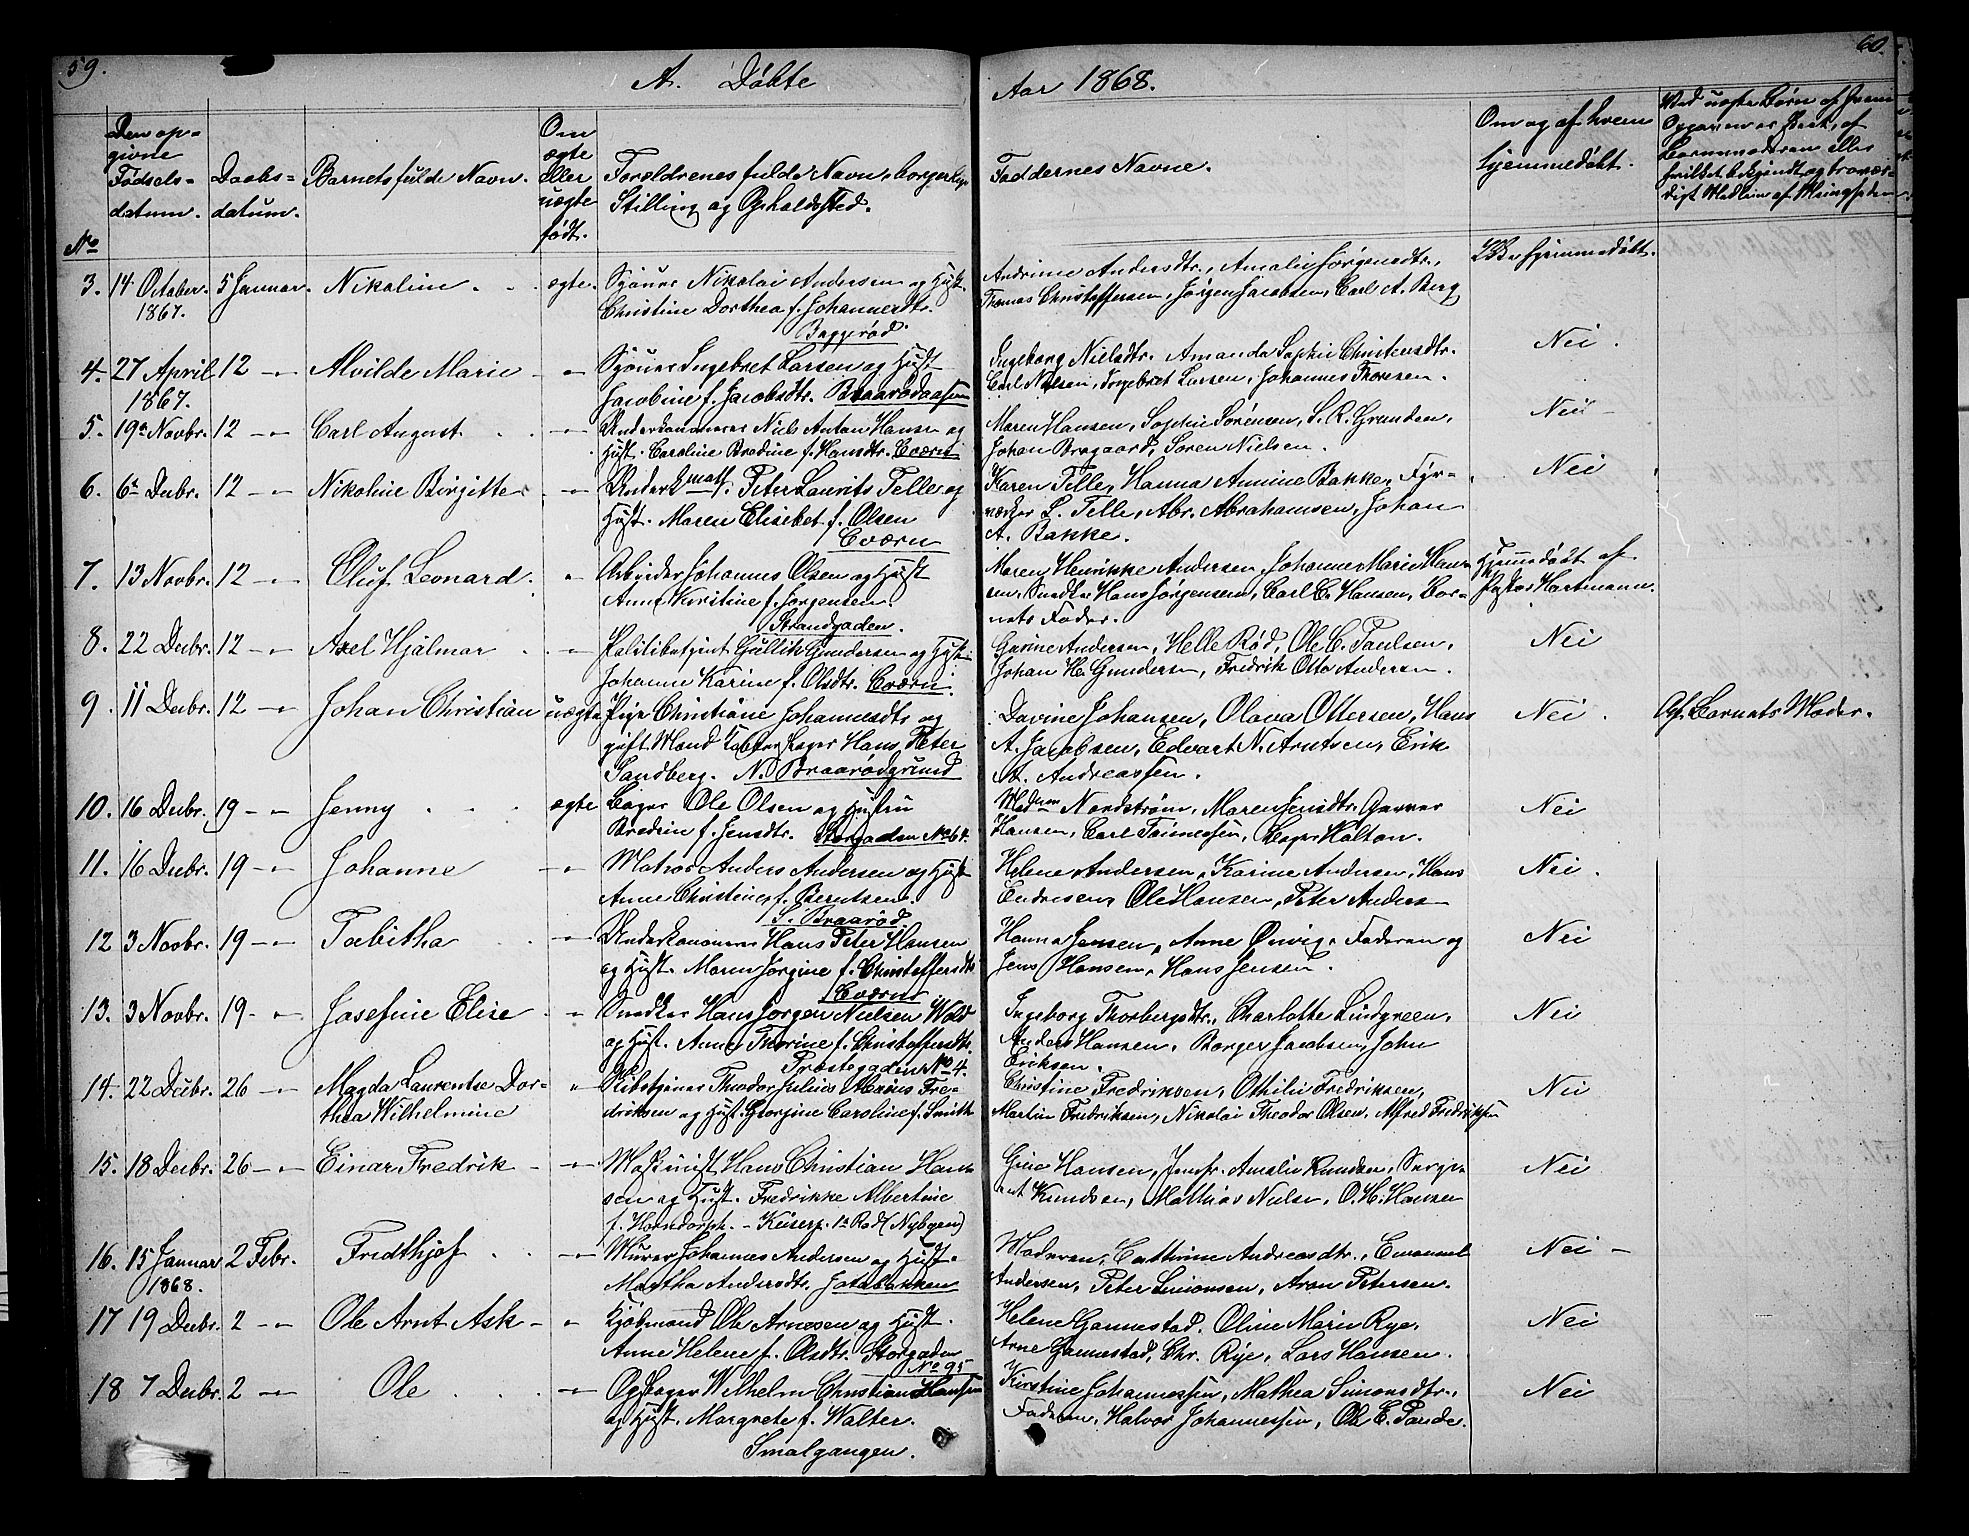 59.
A. Döbte
Aar 1868.
60.
No
Den op-
givne
Fødsels-
datum.
Daabs-
datum.
Barnets fulde Navn.
Om
ægte
eller
uægte
født.
Forældrenes fulde Navn, borgerlige
Stilling og Opholdssted.
Faddernes Navne.
Om og af hvem
hjemmedøbt.
Ved uægte Børn
3. 14 October 5 Januar. Nikoline . . ægte. Nikolai Andersen og Hust.
1867. Christine Dorthea f. Johannesdtr.
Baggerød.
Andrine Andersdtr., Amalie Jørgensdtr., hjemmedøbt.
Thomas Christoffersen, Jørgen Jacobsen, Carl A. Berg
4. 27 April 12 -"- Alvilde Marie -"- Ingebret Larsen og Hust
1867. Jacobine f. Jacobsdtr. Braarødaasen
Ingeborg Nielsdtr. Amanda Sophie Christensdtr. Nei.
Carl Nilsen, Ingebret Larsen, Johannes Thoresen.
5. 19de Novbr. 12 -"- Carl August . -"- Underkanoneer Niels Anton Hansen og
Hust. Caroline Bredine f. Hansdtr. Cværn
Maren Hansen, Sophie Sörensen, S. R. Grunden, Nei -
Johan Bragaard, Soren Nielsen.
6. 6te Decbr. 12 -"- Nikoline Birgitte -"- Peter Laurits Telle og
Hust. Maren Elisebet f. Olsen
Cværn
Karen Telle, Hanna Annine Bakke, Fyr- Nei
værker L. Telle, Abr. Abrahamsen, Johan
A. Bakke.
7. 13 Novbr. 12 -"- Oluf Leonard. " Arbeider Johannes Olsen og Hust
Anne Kirstine f. Jørgensen.
Strandgaden.
Maren Henrikke Andersen, Johanne Marie Han- Hjemmedöbt af
sen, Snedker Hans Jørgensen, Carl C. Hansen, Bar- Pastor Hartmann.
nets Fader.
8. 22 Decbr. 12 -"- Axel Hjalmar . -"- Politibetjent Gullik Gundersen og Hust.
Johanne Karine f. Olsdtr. Cværn.
Gurine Andersen, Helle Rød, Ole C. Paulsen, Nei
Johan H. Gundersen, Fredrik Otto Andersen.
9. 11 Decbr. 12 -"- Johan Christian uægte Pige Christiane Johannesdtr og
gift Mand Hans Peter
Sandberg. N. Braarødgrund
Davine Johansen, Olava Ottersen, Hans Nei. Af Barnets Moder.
A. Jacobsen, Edvart N. Arntsen, Erik
A. Andreassen.
10. 16 Decbr. 19 -"- Jenny . . . ægte Bager Ole Olsen og Hustru
Bredine f. Jensdtr. Storgaden No 64.
Madam Nordstrøm, Maren Jensdtr. Garver Nei
Hansen, Carl Walton.
11. 16 Decbr. 19 -"- Johanne -"- Matros Anders Andersen og Hust
Anne Christine f. Berntsen.
S. Braarød
Helene Andersen, Karine Andersen, Hans Nei.
Endresen, Ole Hansen, Peter Anders-
12 3 Novbr. 19 -"- Tabitha . -"- Underkanoneer Hans Peter Hansen
og Hust. Maren Jørgine f. Christoffersdtr
Cværns
Hanna Jensen, Anne Faderen og Nei
Jens Hansen, Hans Jensen.
13. 3 Novbr. 19 -"- Josefine Elise . " Snedker Hans Jørgen Nielsen Wold
og Hust. Anne Thorine f. Christoffersdtr.
Præstegaden No 4.
Ingeborg Thorbergsdtr, Charlotte Lindgreen, Nei
Anders Hansen, Borger Jacobsen, John
Eriksen.
14. 22 Decbr. 26 -"- Magda Laurentse Dor- " Theodor Julius Marius Fre-
thea Wilhelmine driksen og Hust. Georgine Caroline f. Smith
Christine Fredriksen, Othilie Fredriksen, Nei
Martin Fredriksen, Nikolai Theodor Olsen, Alfred Fredriksen
15. 18 Decbr. 26 -"- Einar Fredrik - -"- Maskinist Hans Christian Han-
sen og Hust. Fredrikke Albertine
f. Horndorph. - Keiserg. 1ste Rad (Nybyen)
Gine Hansen, Jomfr. Amalie Knudsen, Serge- Nei
ant Knudsen, Mathias Nielsen, O. H. Hansen
16. 15 Januar 2 Febr. Fredthjof . -"- Murer Johannes Andersen og Hust.
1868. Martha Andersdtr. Jotabakken
Moderen, Cathrine Andreasdtr., Emanuel Nei -
Andersen, Peter Simonsen, Aron Petersen.
17 19 Decbr. 2 -"- Ole Arnt Ask - " Kjøbmand Ole Arnesen og Hust.
Anne Helene f. Olsdtr. Storgaden
No 95
Helene Gannestad, Oline Marie Rye, Nei
Arne Gannestad, Chr. Rye, Lars Hansen.
18 7 Decbr. 2 -"- Ole . . -"- Wilhelm Christian Hansen
og Hust. Margrete f. Walter.
Smalgangen.
Kirstine Johannessen, Mathea Simonsdtr., Nei
Faderen, Halvor Johannessen, Ole E. Pande.